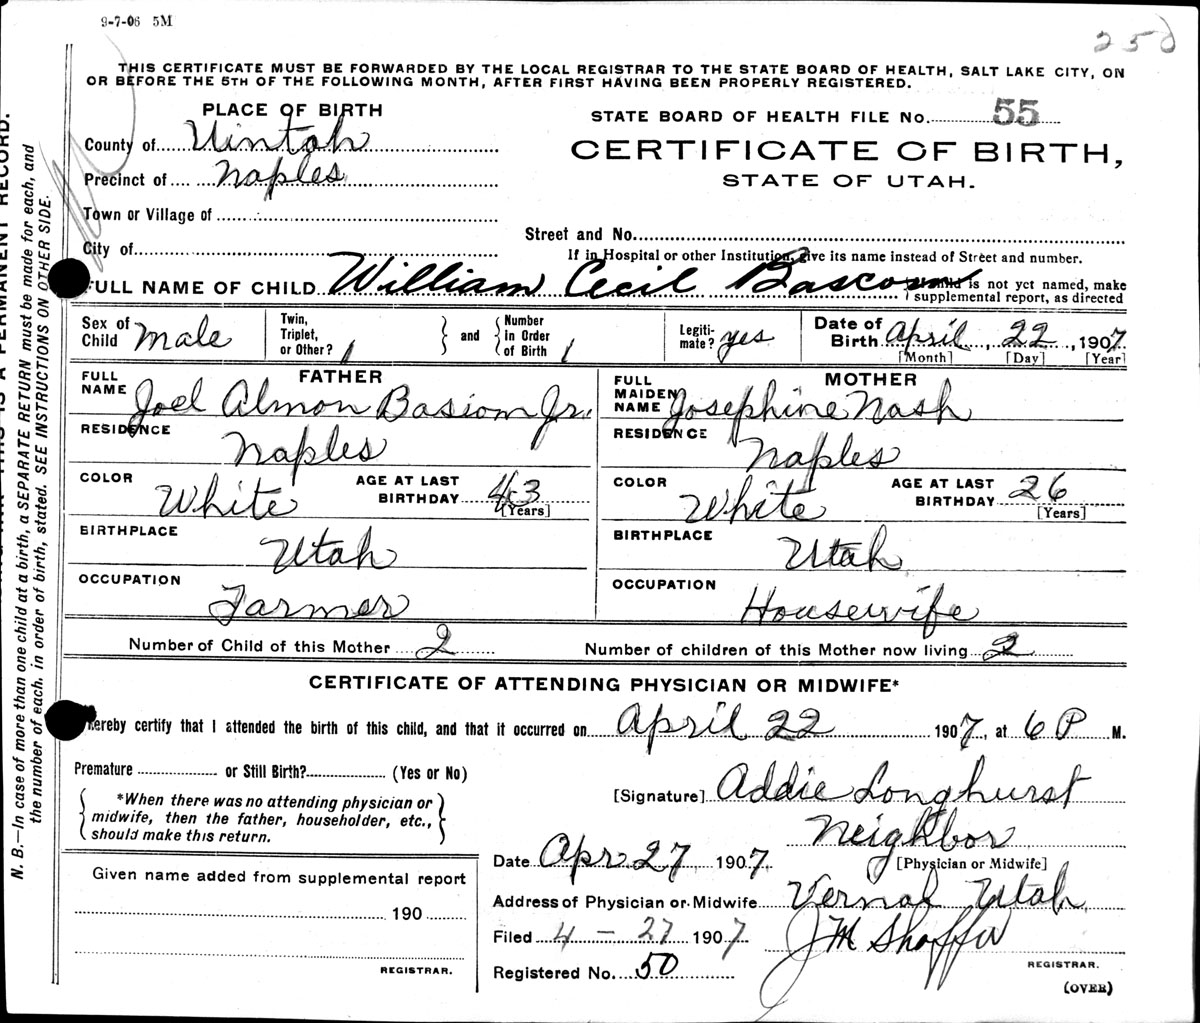 9-7-06 5M
250
THIS CERTIFICATE MUST BE FORWARDED BY THE LOCAL REGISTRAR TO THE STATE BOARD OF HEALTH, SALT LAKE CITY, ON
OR BEFORE THE 5TH OF THE FOLLOWING MONTH, AFTER FIRST HAVING BEEN PROPERLY REGISTERED.
PLACE OF BIRTH
STATE BOARD OF HEALTH FILE No. 55
County of Uintah
CERTIFICATE OF BIRTH,
Precinct of Naples
STATE OF UTAH.
Town or Village of
Street and No.
City of
If in Hospital or other Institution, give its name instead of Street and number.
FULL NAME OF CHILD William Cecil Bascom
is not yet named, make
supplemental report, as directed
Sex of Child Male
Twin, Triplet, or Other? 1
and
Number in Order of Birth 1
Legiti-mate? yes
Date of Birth April 22, 1907
[Month] [Day] [Year]
FATHER
FULL NAME Joel Almon Basiom Jr.
RESIDENCE
Naples
COLOR White
AGE AT LAST BIRTHDAY 43
[Years]
BIRTHPLACE
Utah
OCCUPATION
Farmer
MOTHER
FULL MAIDEN NAME Josephine Nash
RESIDENCE
Naples
COLOR White
AGE AT LAST BIRTHDAY 26
[Years]
BIRTHPLACE
Utah
OCCUPATION
Housewife
Number of Child of this Mother 2
Number of children of this Mother now living 2
CERTIFICATE OF ATTENDING PHYSICIAN OR MIDWIFE*
hereby certify that I attended the birth of this child, and that it occurred on April 22 1907, at 6 P M.
Premature or Still Birth? (Yes or No)
*When there was no attending physician or
midwife, then the father, householder, etc.,
should make this return.
[Signature] Addie Longhurst
Neighbor
Date Apr 27 1907
[Physician or Midwife]
Given name added from supplemental report
190
REGISTRAR.
Address of Physician or Midwife Vernal Utah
Filed 4 - 27 1907
J M Shaffer
REGISTRAR.
Registered No. 50
(OVER)
IS A PERMANENT RECORD.
N. B.—In case of more than one child at a birth, a SEPARATE RETURN must be made for each, and
the number of each, in order of birth, stated. SEE INSTRUCTIONS ON OTHER SIDE.